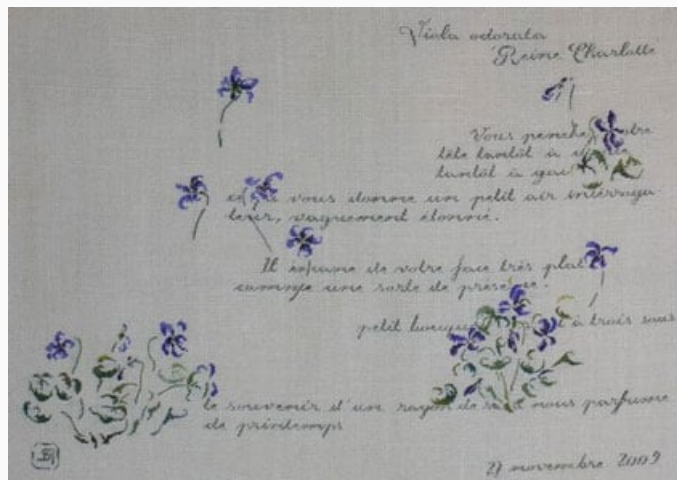 Viola odorata
'Reine Charlotte'
Vous penchez votre
tête tantôt à
tantôt à
vous donne un petit air interroga-
teur, vaguement étonné.
Il émane de votre face très plate
comme une sorte de présence.
petit à trois sous
le souvenir d'un rayon de nous parfume
de printemps
27 novembre 2009